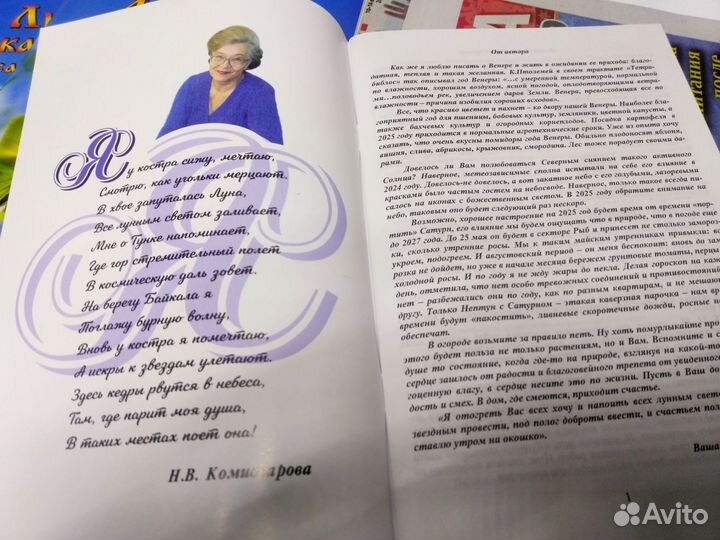 Я у костра сижу, мечтаю,
Смотрю, как угольки мерцают.
В хвое запуталась Луна,
Все лунным светом заливает,
Мне о Тунке напоминает,
Где гор стремительный полет
В космическую даль зовет.
На берегу Байкала я
Поглажу бурную волну,
Вновь у костра я помечтаю,
А искры к звездам улетают.
Здесь кедры рвутся в небеса,
Там, где парит моя душа,
В таких местах поет она!
Н.В. Комиссарова
От автора
Как же я люблю писать о Венере и жить в ожидании ее прихода: благо-
датная, теплая и такая желанная. К.Птолемей в своем трактате «Тетра-
библос» так описывал год Венеры: «…с умеренной температурой, нормальной
по влажности, хорошим воздухом, ясной погодой, оплодотворяющими ветра-
ми…половодьем рек, увеличением даров Земли. Венера, превосходящая все по
влажности – причина изобилия хороших всходов».
Все, что красиво цветет и пахнет – ко двору нашей Венеры. Наиболее бла-
гоприятный год для пшеницы, бобовых культур, земляники, цветной капусты, а
также бахчевых культур и огородных корнеплодов. Посадка картофеля в
2025 году приходится в нормальные агротехнические сроки. Уже из опыта хочу
сказать, что очень вкусны помидоры года Венеры. Обильно плодоносят яблоня,
вишня, слива, абрикосы, крыжовник, смородина. Лес тоже порадует своими да-
рами.
Довелось ли Вам полюбоваться Северным сиянием такого активного
Солнца? Наверное, метеозависимые сполна испытали на себе его влияние в
2024 году. Довелось-не довелось, а вот закатное небо с его голубыми, лазоревыми
красками было частым гостем на небосводе. Наверное, только такое всегда пи-
салось на иконах с божественным светом. В 2025 году обратите внимание на
небо, таковым оно будет следующий раз нескоро.
Возможно, хорошее настроение на 2025 год будет время от времени «пор-
тить» Сатурн, его влияние мы будем ощущать что в природе, что в погоде еще
до 2027 года. До 25 мая он будет в секторе Рыб и принесет не столько замороз-
ки, сколько утренние росы. Мы к таким майским утренникам привыкли: вс
укроем, подогреем. И августовский период – он меня беспокоит: вновь до зам
розка не дойдет, но уже в начале месяца бережем грунтовые томаты, перцы
холодной росы. И по году я не жду жары до пекла. Делая гороскоп на кажд
день, отметила, что нет особо тревожных соединений и противостояни
нет – разбежались они по году, как по разным квартирам, и не мешаю
другу. Только Нептун с Сатурном – этакая каверзная парочка – нам вр
времени будут «пакостить», ливневые скоротечные дожди, росные но
обеспечат.
В огороде возьмите за правило петь. Ну хоть помурлыкайте пр
этого будет польза не только растениям, но и Вам. Вспомните и с
душе то состояние, когда где-то на природе, взглянув на какой-то
сердце зашлось от радости и благоговейного трепета от увиденног
гоценную влагу, в сердце несите это по жизни. Пусть в Ваш до
дость и смех. В дом, где смеются, приходит счастье.
«Я отогреть Вас всех хочу и напоить всех лунным свето
звездным провести, под полог доброты ввести, и счастьем пол
ставлю утром на окошко».
Ваша
1
Avito